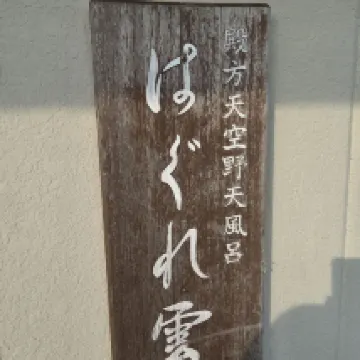 殿方天空野天風呂
はぐれ雲